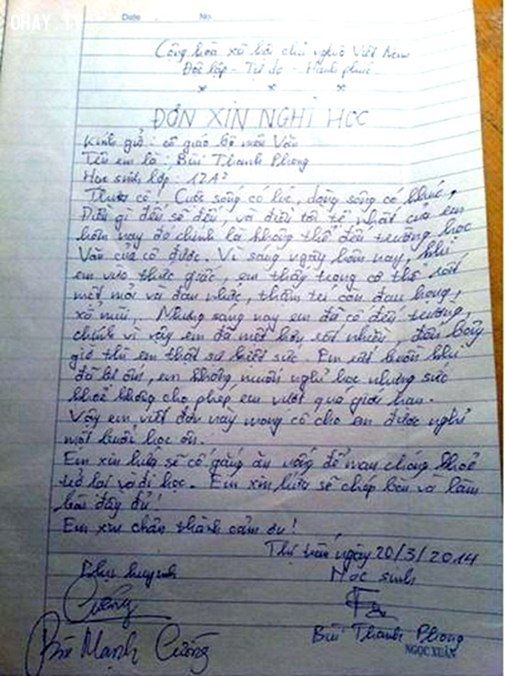 OHAY TV
Date No.
Cộng hòa xã hội chủ nghĩa Việt Nam
Độc lập - Tự do - Hạnh phúc
* * *
ĐƠN XIN NGHỈ HỌC
Kính gửi : cô giáo bộ môn Văn
Tên em là : Bùi Thanh Phong
Học sinh lớp : 12A²
Thưa cô ! Cuộc sống có lúc, dòng sông có khúc,
Điều gì đến sẽ đến, và điều tồi tệ nhất của em
hôm nay đó chính là không thể đến trường học
Văn của cô được. Vì sáng ngày hôm nay, khi
em vừa thức giấc, em thấy trong cơ thể rất
mệt mỏi và đau nhức, thậm chí còn đau họng,
xổ mũi,.. Nhưng sáng nay em đã cố đến trường,
chính vì vậy em đã mệt hơn rất nhiều, đến bây
giờ thì em thật sự kiệt sức. Em rất buồn khi
đã bị ốm, em không muốn nghỉ học nhưng sức
khoẻ không cho phép em vượt qua giới hạn.
Vậy em viết đơn này mong cô cho em được nghỉ
một buổi học ôn.
Em xin hứa sẽ cố gắng ăn uống để mau chóng khoẻ
trở lại và đi học. Em xin hứa sẽ chép bài và làm
bài đầy đủ !
Em xin chân thành cảm ơn !
Thị trấn, ngày 20/3/2014
Phụ huynh Học sinh
Cường
Bùi Mạnh Cường Bùi Thanh Phong
NGỌC XUÂN